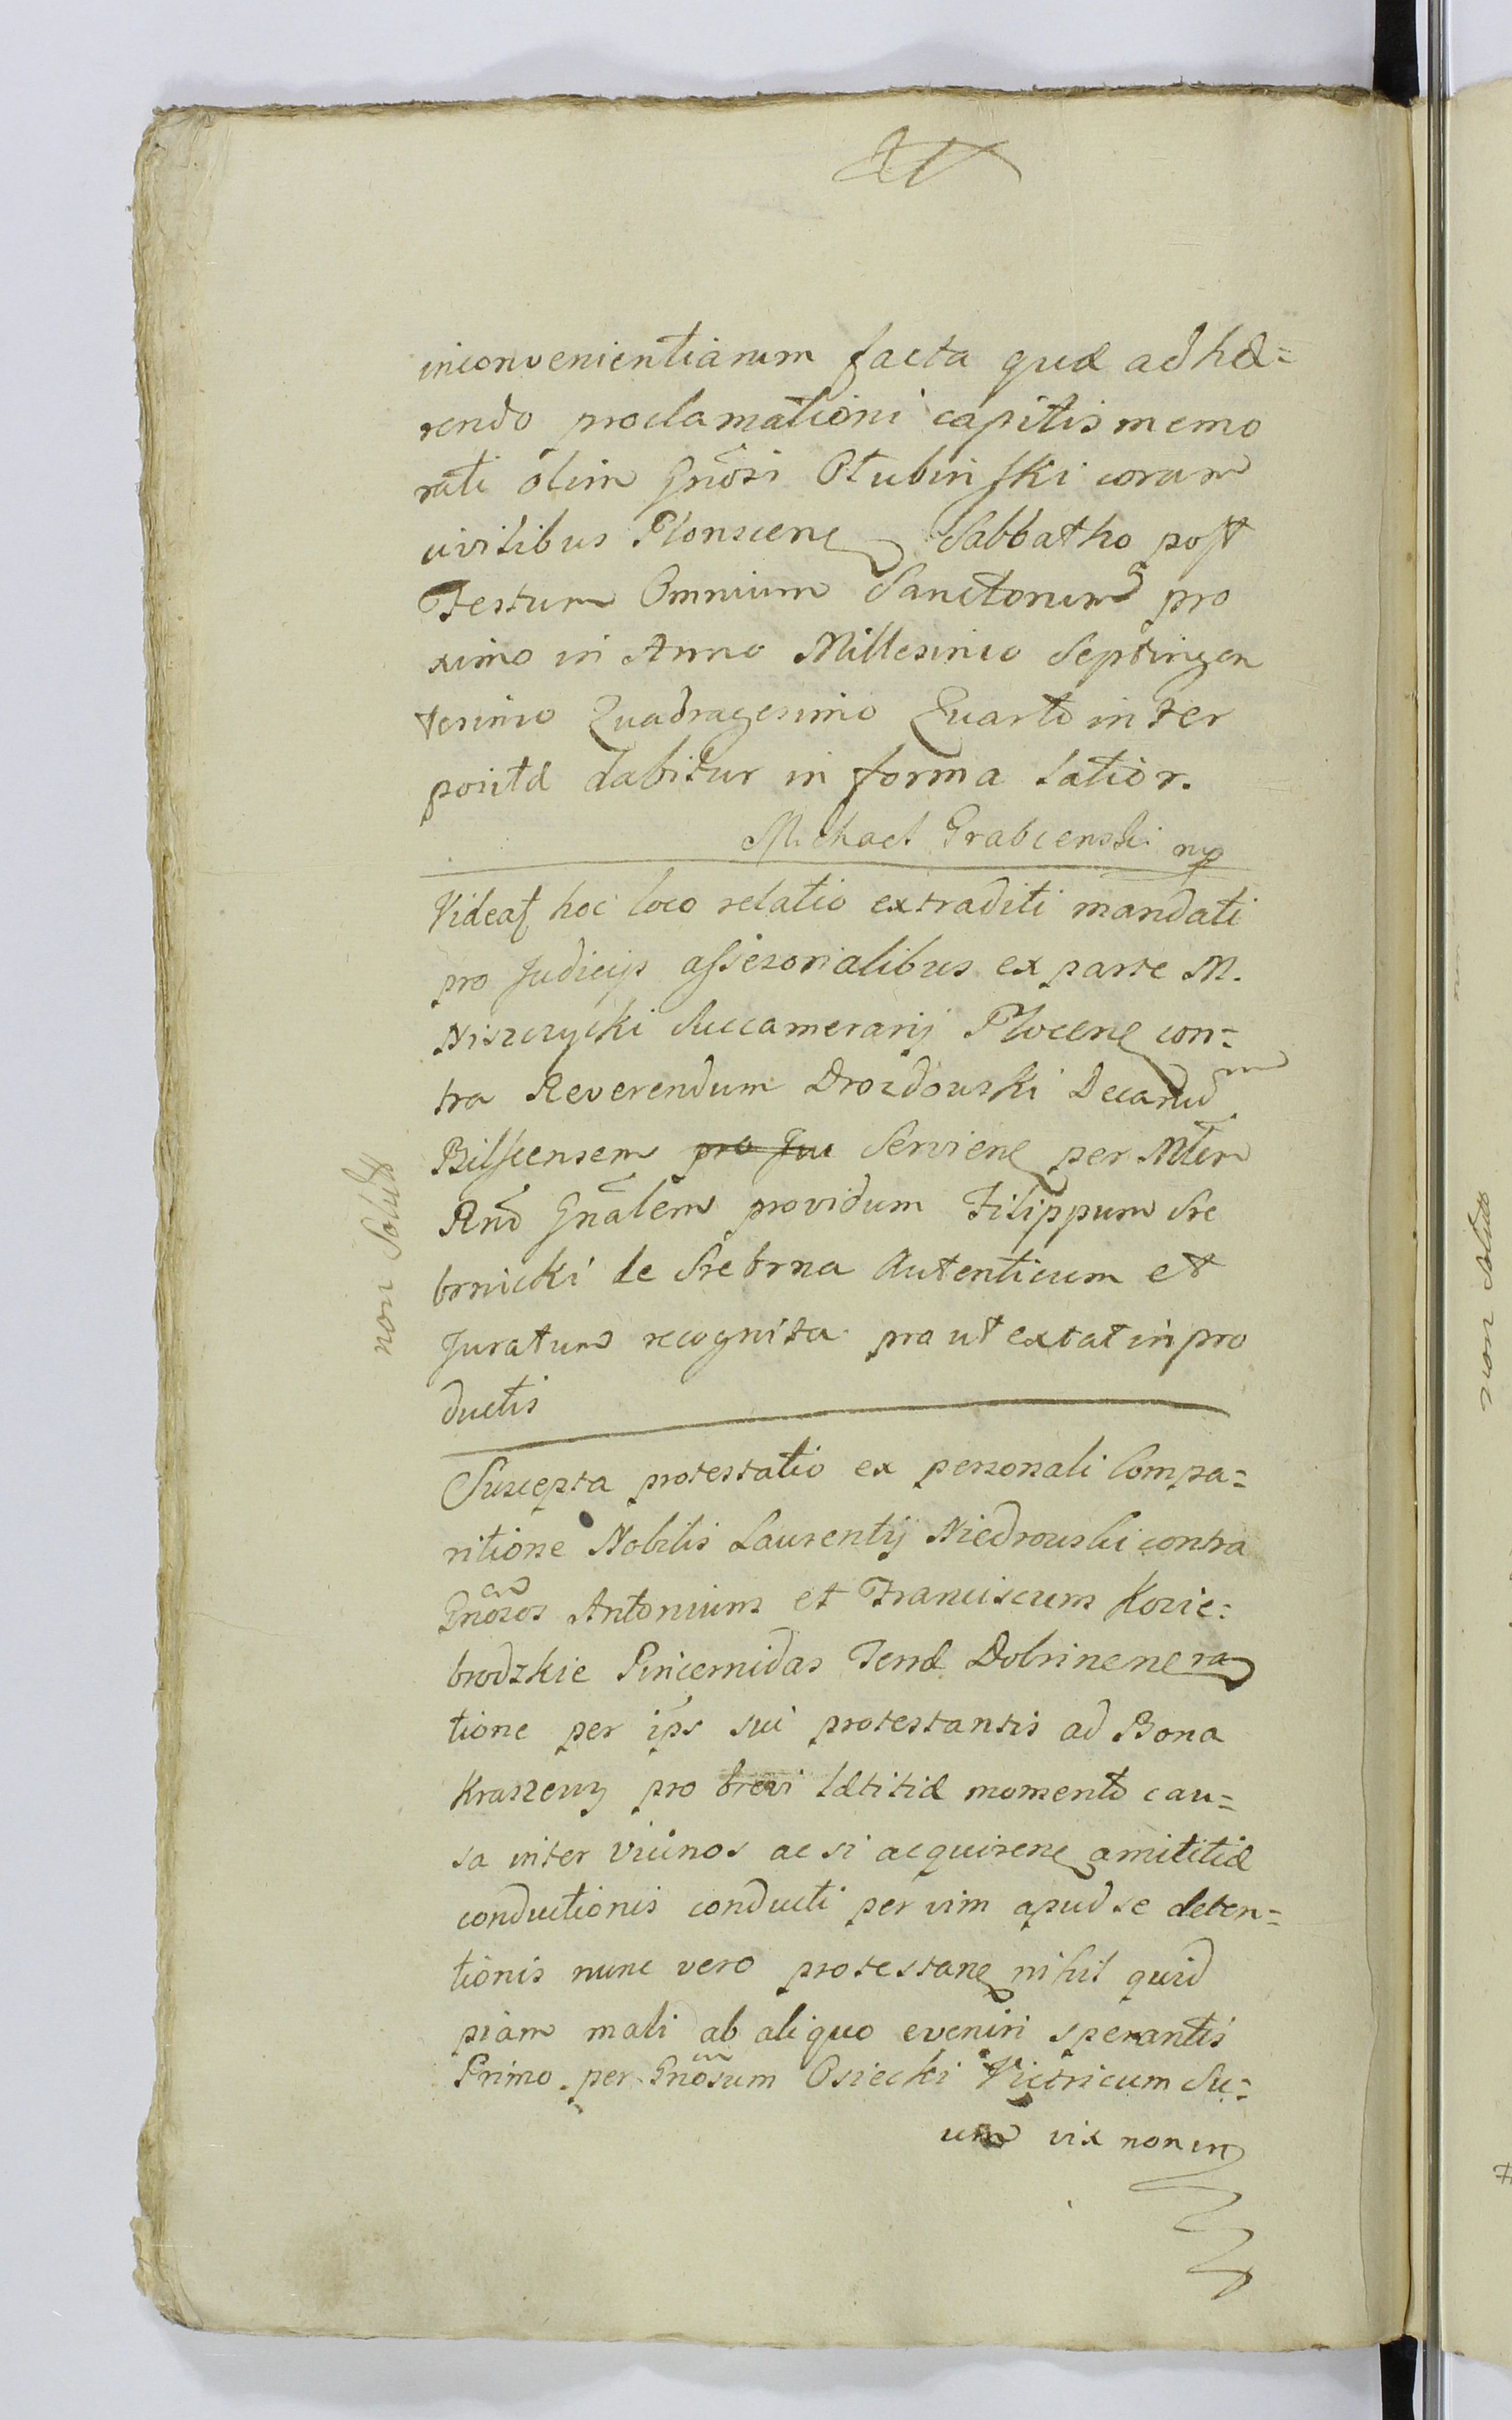 inconvenientiarum facta quæ adhæ=
rendo proclamationi capitis memo
rati olim Gnosi Otubinski coram
civilibus Plonscen Sabbatho post
Festum Omnium Sanctorum pro
ximo in Anno Millesimo Septingen
tesimo Quadragesimo Quarto inter
positâ dabitur in forma latior.
Michael Grabienski mp
Videat hoc loco relatio extraditi mandati
pro Judicijs assesorialibus ex parte M.
Niszczycki Succamerarij Plocen con=
tra Reverendum Drozdowski Decanum
Bilscensem pro Ju Servien per Mtem
Rnd Gnalem providum Filippum Sre
brnicki de Srebrna Autenticum et
Juratum recognita prout extat in pro
ductis
non Soluts
Suscepta protestatio ex personali Compa=
ritione Nobilis Laurentij Niedrowski contra
Gnosos Antonium et Franciscum Kozie=
brodzkie Pincernidas Terræ Dobrinen ra
tione per ips sui protestantis ad Bona
Kraszewo pro brevi lætitiæ momento cau=
sa inter vicinos ac si acquiren amicitiæ
conductionis conducti per vim apud se deten=
tionis nunc vero protestan nihil quid
piam mali ab aliquo eveniri sperantis
Primo per Gnosum Osiecki Victricum Su=
um vix non in
non soluts